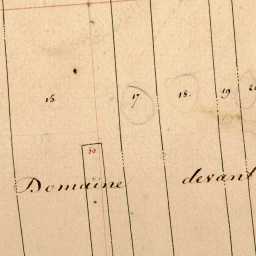 15. 17 18. 19
Domaine devant